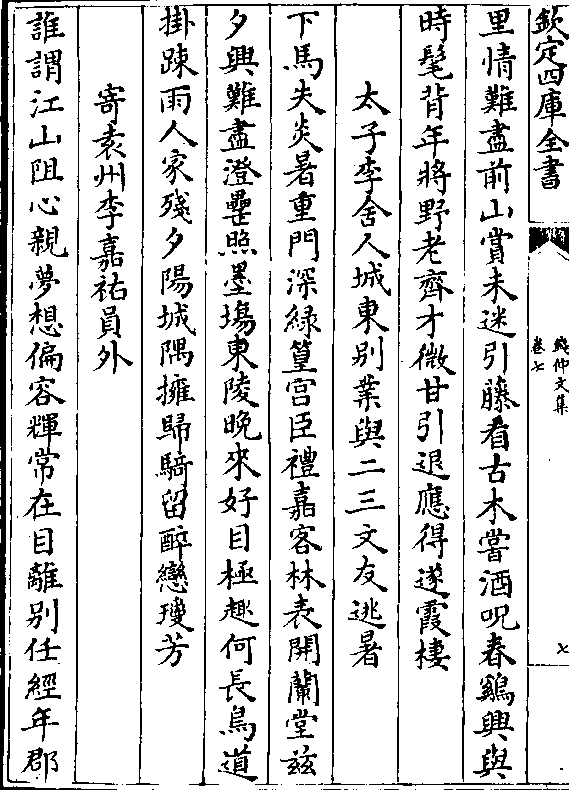 欽定四庫全書
錢仲文集
卷七
七
里情難盡前山賞未迷引藤看古木嘗酒呪春鷄興與
時髦背年將野老齊才微甘引退應得遂霞棲
太子李舍人城東別業與二三文友逃暑
下馬失炎暑重門深綠篁宮臣禮嘉客林表開蘭堂兹
夕興難盡澄罍照墨塲東陵晚來好目極趣何長鳥道
掛踈雨人家殘夕陽城隅擁歸騎留醉戀瓊芳
寄袁州李嘉祐員外
誰謂江山阻心親夢想偏容輝常在目離别任經年郡